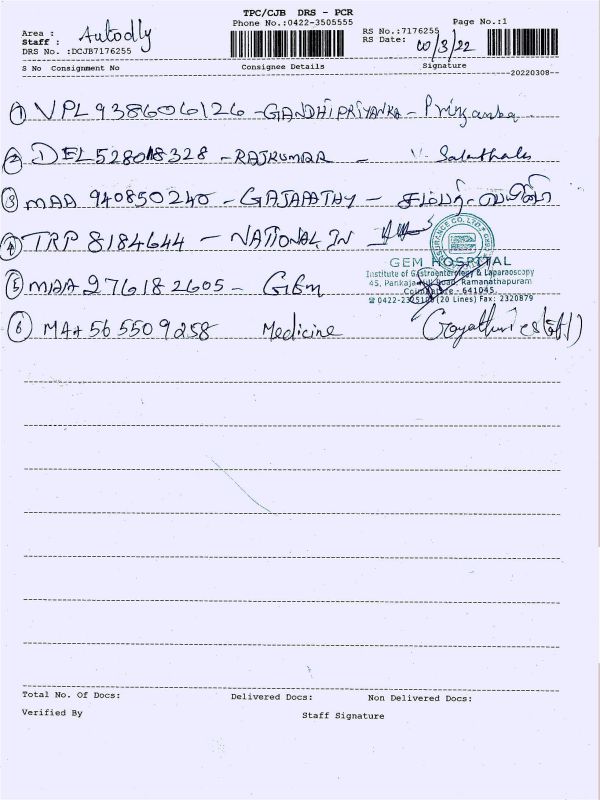 TPC/CJB DRS - PCR
Phone No.:0422-3505555
Page No.:1
Area :
Staff : Autodly
DRS No. :DCJB7176255
RS No.:7176255
RS Date: 10/3/22
S No Consignment No Consignee Details Signature
20220308
1 VPL 938606126 - GANDHIPRIYANKA - Priyanka
2 DEL 528018328 - RAJKUMAR -
3 MAA 940850240 - GAJAPATHY -
4 TRP 8184644 - NATIONAL IN
GEM HOSPITAL
Institute of Gastroenterology & Laparaoscopy
45, Pankaja Mill Road, Ramanathapuram
Coimbatore - 641045
0422-2325100 (20 Lines) Fax: 2320879
5 MAA 276182605 - GEM
6 MAA 565509258 Medicine Gayathri (staff)
Total No. Of Docs: Delivered Docs: Non Delivered Docs:
Verified By Staff Signature